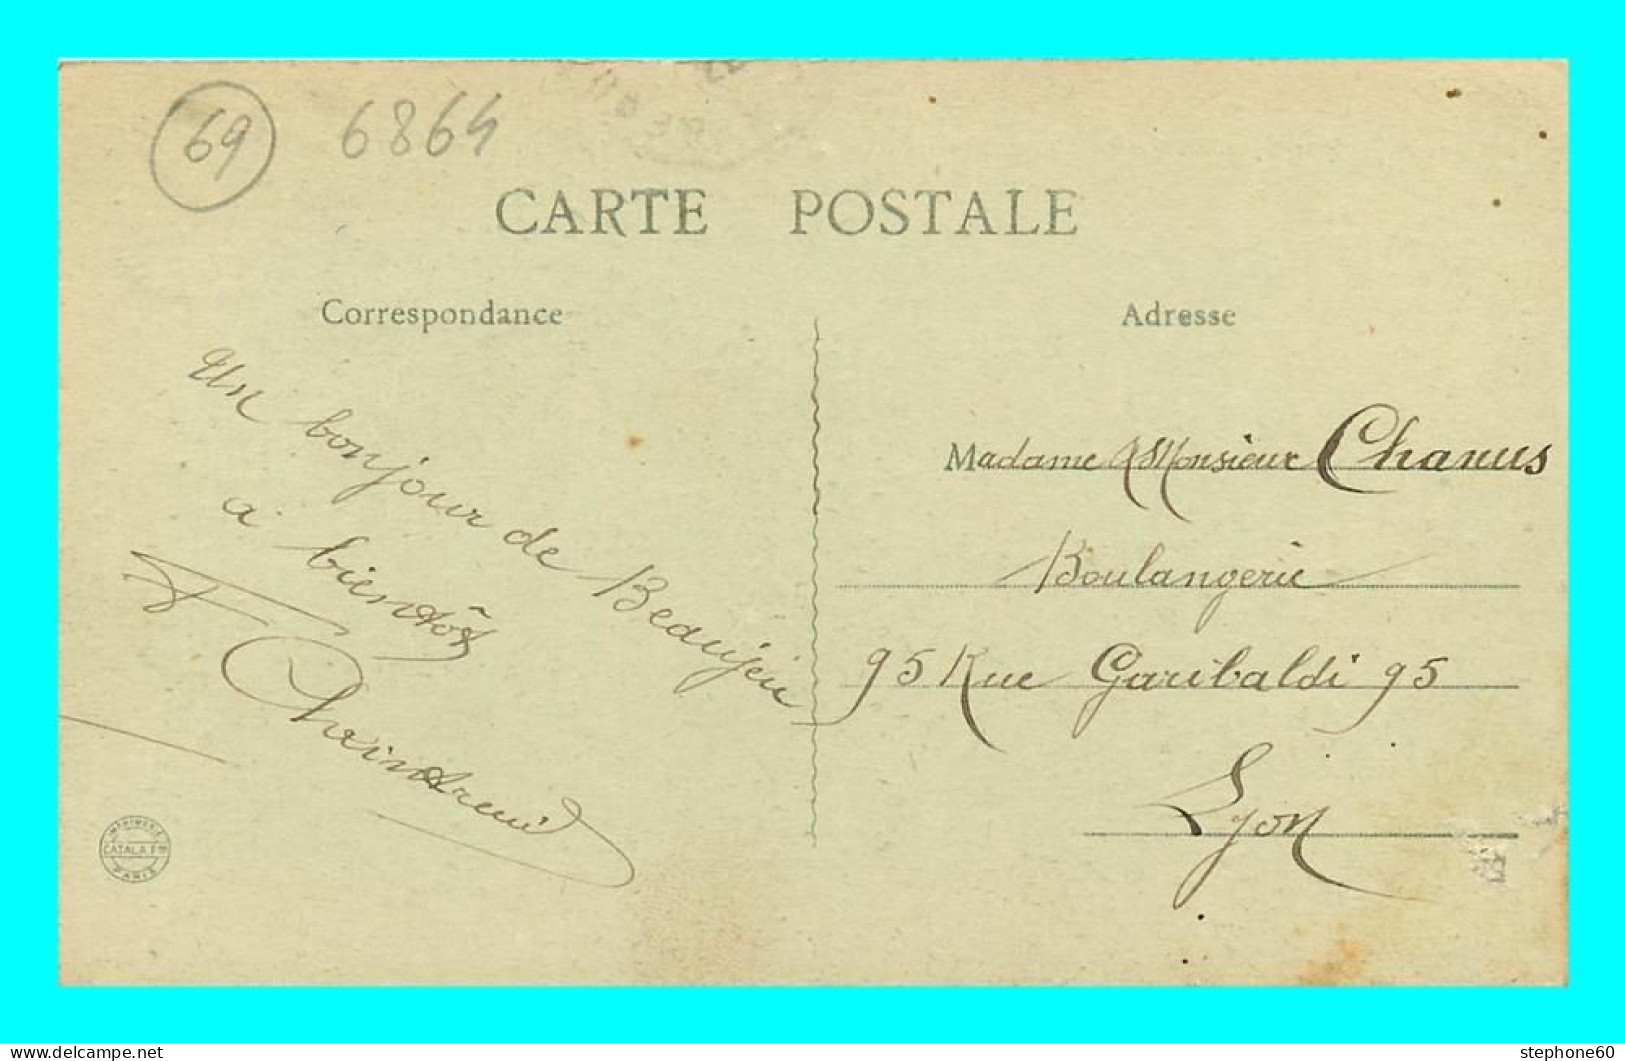 69
6864
CARTE POSTALE
Correspondance
Adresse
Un bonjour de Beaujeu
a bientôt
Madame & Monsieur Chanus
Boulangerie
95 Rue Garibaldi 95
Lyon
IMPRIMERIE
CATALA Frès
PARIS
stephone60